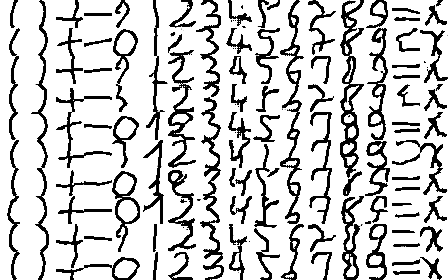 ( ) + - 1 2 3 4 5 6 7 8 9 = x
( ) + - 0 1 2 3 4 5 6 7 8 9 x
( ) + - 1 2 3 4 5 6 7 8 9 = x
( ) + - 1 2 3 4 5 6 7 8 9 x
( ) + - 0 1 2 3 4 5 6 7 8 9 = x
( ) + - 1 2 3 4 5 6 7 8 9 x
( ) + - 0 1 2 3 4 5 6 7 8 9 = x
( ) + - 0 1 2 3 4 5 6 7 8 9 = x
( ) + - 1 2 3 4 5 6 7 8 9 = x
( ) + - 0 1 2 3 4 5 6 7 8 9 = x